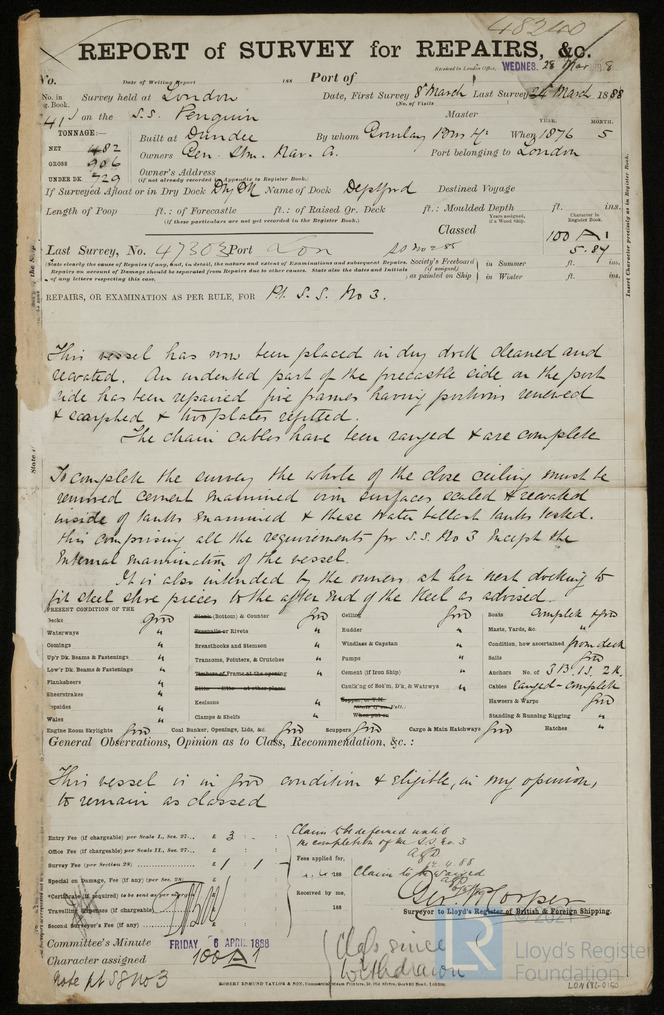 48200
REPORT of SURVEY for REPAIRS, &c.
No. Date of Writing Report 188 Port of Received in London Office, WEDNES. 28 Mar 8
No. in Reg. Book. Survey held at London Date, First Survey 8th March Last Survey 24th March 1888
(No. of Visits
41 on the S.S. Penguin Master
TONNAGE:— YEAR. MONTH.
NET 482 Built at Dundee By whom Gourlay Bros & Co When 1876 5
GROSS 906 Owners Gen. Stm. Nav. Co. Port belonging to London
UNDER DK. 729 Owner's Address
(if not already recorded in Appendix to Register Book.)
If Surveyed Afloat or in Dry Dock Dry Dk Name of Dock Deptford Destined Voyage
Length of Poop ft.: of Forecastle ft.: of Raised Qr. Deck ft.: Moulded Depth ft. ins.
(if these particulars are not yet recorded in the Register Book.)
Years assigned, if a Wood Ship. Character in Register Book.
Classed 100 A 1
Last Survey, No. 47303 Port Lon SS No 2-85 5.87
(State clearly the cause of Repairs if any, and, in detail, the nature and extent of Examinations and subsequent Repairs. Society's Freeboard (if assigned) as painted on Ship in Summer ft. ins.
Repairs on account of Damage should be separated from Repairs due to other causes. State also the dates and Initials of any letters respecting this case. in Winter ft. ins.
Insert Character precisely as in Register Book.
REPAIRS, OR EXAMINATION AS PER RULE, FOR Pt. S.S. No 3.
This vessel has now been placed in dry dock cleaned and
recoated. An indented part of the forecastle side on the port
side has been repaired five frames having portions renewed
& scarphed & two plates refitted.
The chain cables have been ranged & are complete
To complete the survey the whole of the close ceiling must be
removed cement examined iron surfaces scaled & recoated
inside of tanks examined & these water ballast tanks tested.
This comprising all the requirements for S.S. No 3 except the
Internal examination of the vessel.
It is also intended by the owners at her next docking to
fit steel shoe pieces to the after end of the Keel as advised.
PRESENT CONDITION OF THE
Decks Good (Bottom) & Counter Good Ceiling Good Boats Complete & good
Waterways " or Rivets " Rudder " Masts, Yards, &c. "
Comings " Breasthooks and Stemson Windlass & Capstan " Condition, how ascertained from deck
Up'r Dk. Beams & Fastenings " Transoms, Pointers, & Crutches " Pumps " Sails Good
Low'r Dk. Beams & Fastenings " Timbers of Frame at the opening Cement (if Iron Ship) " Anchors No. of 3 B. 1 S. 2 K.
Planksheers " Ditto Ditto at other places Caulk'ng of Bot'm, D'k, & Watrwys " Cables Ranged - complete
Sheerstrakes " Keelsons " Hawsers & Warps Good
Topsides " Clamps & Shelfs " Standing & Running Rigging "
Wales "
Engine Room Skylights Good Coal Bunker, Openings, Lids, &c. Good Scuppers Good Cargo & Main Hatchways Good Hatches "
General Observations, Opinion as to Class, Recommendation, &c.:
This vessel is in good condition & eligible, in my opinion,
to remain as classed
Entry Fee (if chargeable) per Scale I., Sec. 27... £ 3 : - : Claim to be deferred until
Office Fee (if chargeable) per Scale II., Sec. 27... £ : : the completion of the S.S. No. 3
Survey Fee (per Section 28) £ 1 : 1 Fees applied for,
Special or Damage, Fee (if any) (per Sec. 28) £ : : 188 Claim to be waived
*Certificate (if required) to be sent as per
Travelling Expenses (if chargeable) Received by me,
Second Surveyor's Fee (if any) 188
Surveyor to Lloyd's Register of British & Foreign Shipping.
Committee's Minute FRIDAY 6 APRIL 1888
Character assigned 100 A 1
Note pt SS No 3
Class since
withdrawn
© 2021
LR
Lloyd's Register
Foundation
ROBERT EDMUND TAYLOR & SON,
LON 686-0150